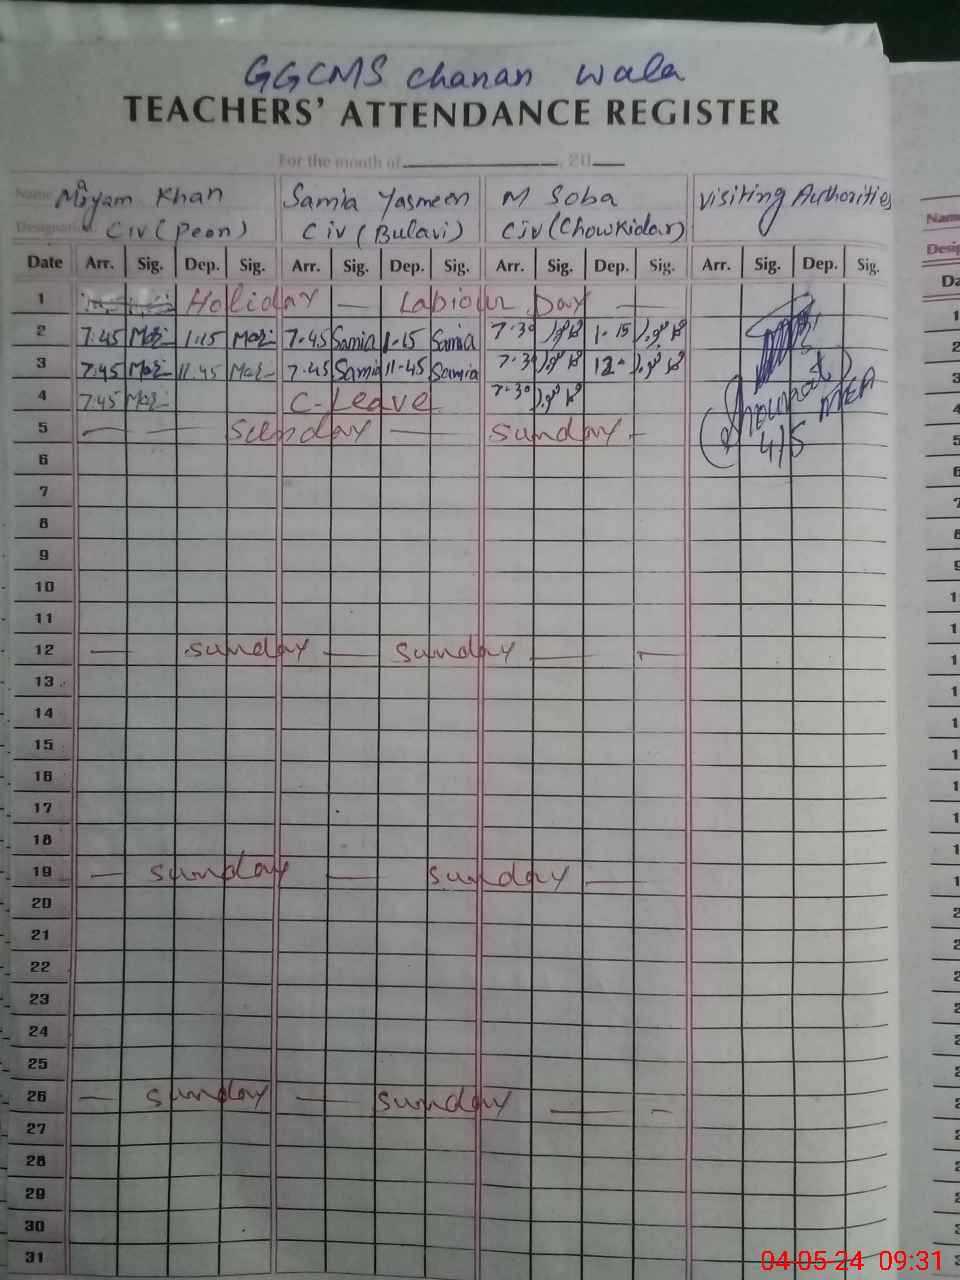 GGCMS chanan wala
TEACHERS' ATTENDANCE REGISTER
For the month of ______, 20__
Name Miyam Khan Samia Yasmeen M Soba Visiting Authorities
Designation Civ (Peon) Civ (Bulavi) Civ (Chowkidar)
Date Arr. Sig. Dep. Sig. Arr. Sig. Dep. Sig. Arr. Sig. Dep. Sig. Arr. Sig. Dep. Sig.
1 Holiday — Labiour Day —
2 7.45 1.15 7.45 Samia 1-15 Samia 7.30 1-15
3 7.45 11.45 7.45 Samia 11-45 Samia 7.30 12-
4 7.45 C-Leave 7.30
5 — — Sunday — Sunday -
6
7
8
9
10
11
12 — sunday — sunday — —
13
14
15
16
17
18
19 — sunday — sunday —
20
21
22
23
24
25
26 — sunday — sunday — –
27
28
29
30
31
(Showkat) MEA
4/5
04-05-24 09:31